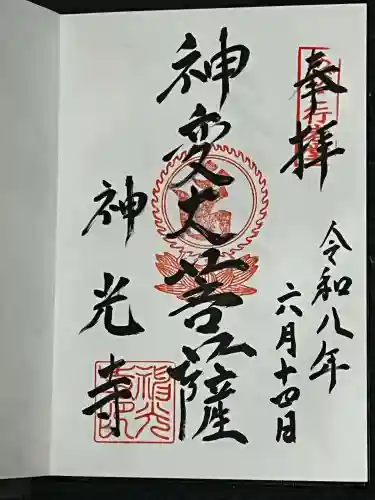 奉拝
令和八年
六月十四日
神変大菩薩
神光寺